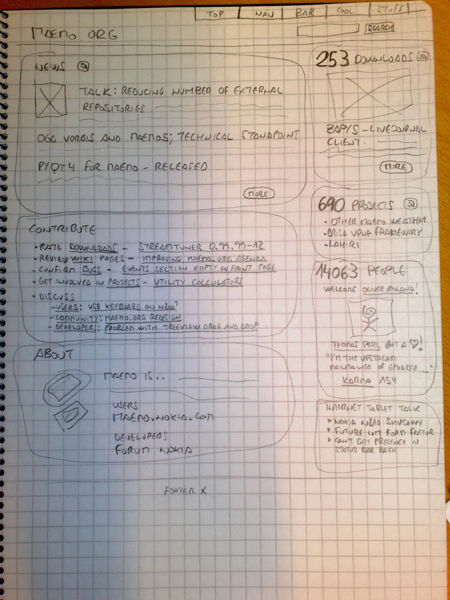 TOP NAV BAR COOL STUFF
MAEMO.ORG
SEARCH
NEWS
TALK: REDUCING NUMBER OF EXTERNAL
REPOSITORIES
OGG VORBIS AND MAEMO5; TECHNICAL STANDPOINT
PYQT4 FOR MAEMO - RELEASED
MORE
CONTRIBUTE
• RATE DOWNLOADS - STREAMTUNER 0.99.99-12
• REVIEW WIKI PAGES - IMPROVING MAEMO.ORG AGENDA
• CONFIRM BUGS - EVENTS SECTION EMPTY ON FRONT PAGE
• GET INVOLVED IN PROJECTS - UTILITY CALCULATORS
• DISCUSS
- USERS: USB KEYBOARD ON
- COMMUNITY: MAEMO.ORG REDESIGN
- DEVELOPERS: PROBLEM WITH TREEVIEW DRAG AND DROP
ABOUT
MAEMO IS...
USERS
MAEMO.NOKIA.COM
DEVELOPERS
FORUM NOKIA
253 DOWNLOADS
- LIVEJOURNAL
CLIENT.
MORE
690 PROJECTS
• OTHER MAEMO WEATHER
FRAMEWORK
14063 PEOPLE
WELCOME
THOMAS PERL GOT A ♡!
"I'M THE UPSTREAM
MAINTAINER OF GPODDER...."
KARMA 154
INTERNET TABLET TALK
NOKIA
FUTURE FORM FACTOR
CAN'T GET PRESENCE IN
STATUS BAR BACK
FOOTER X